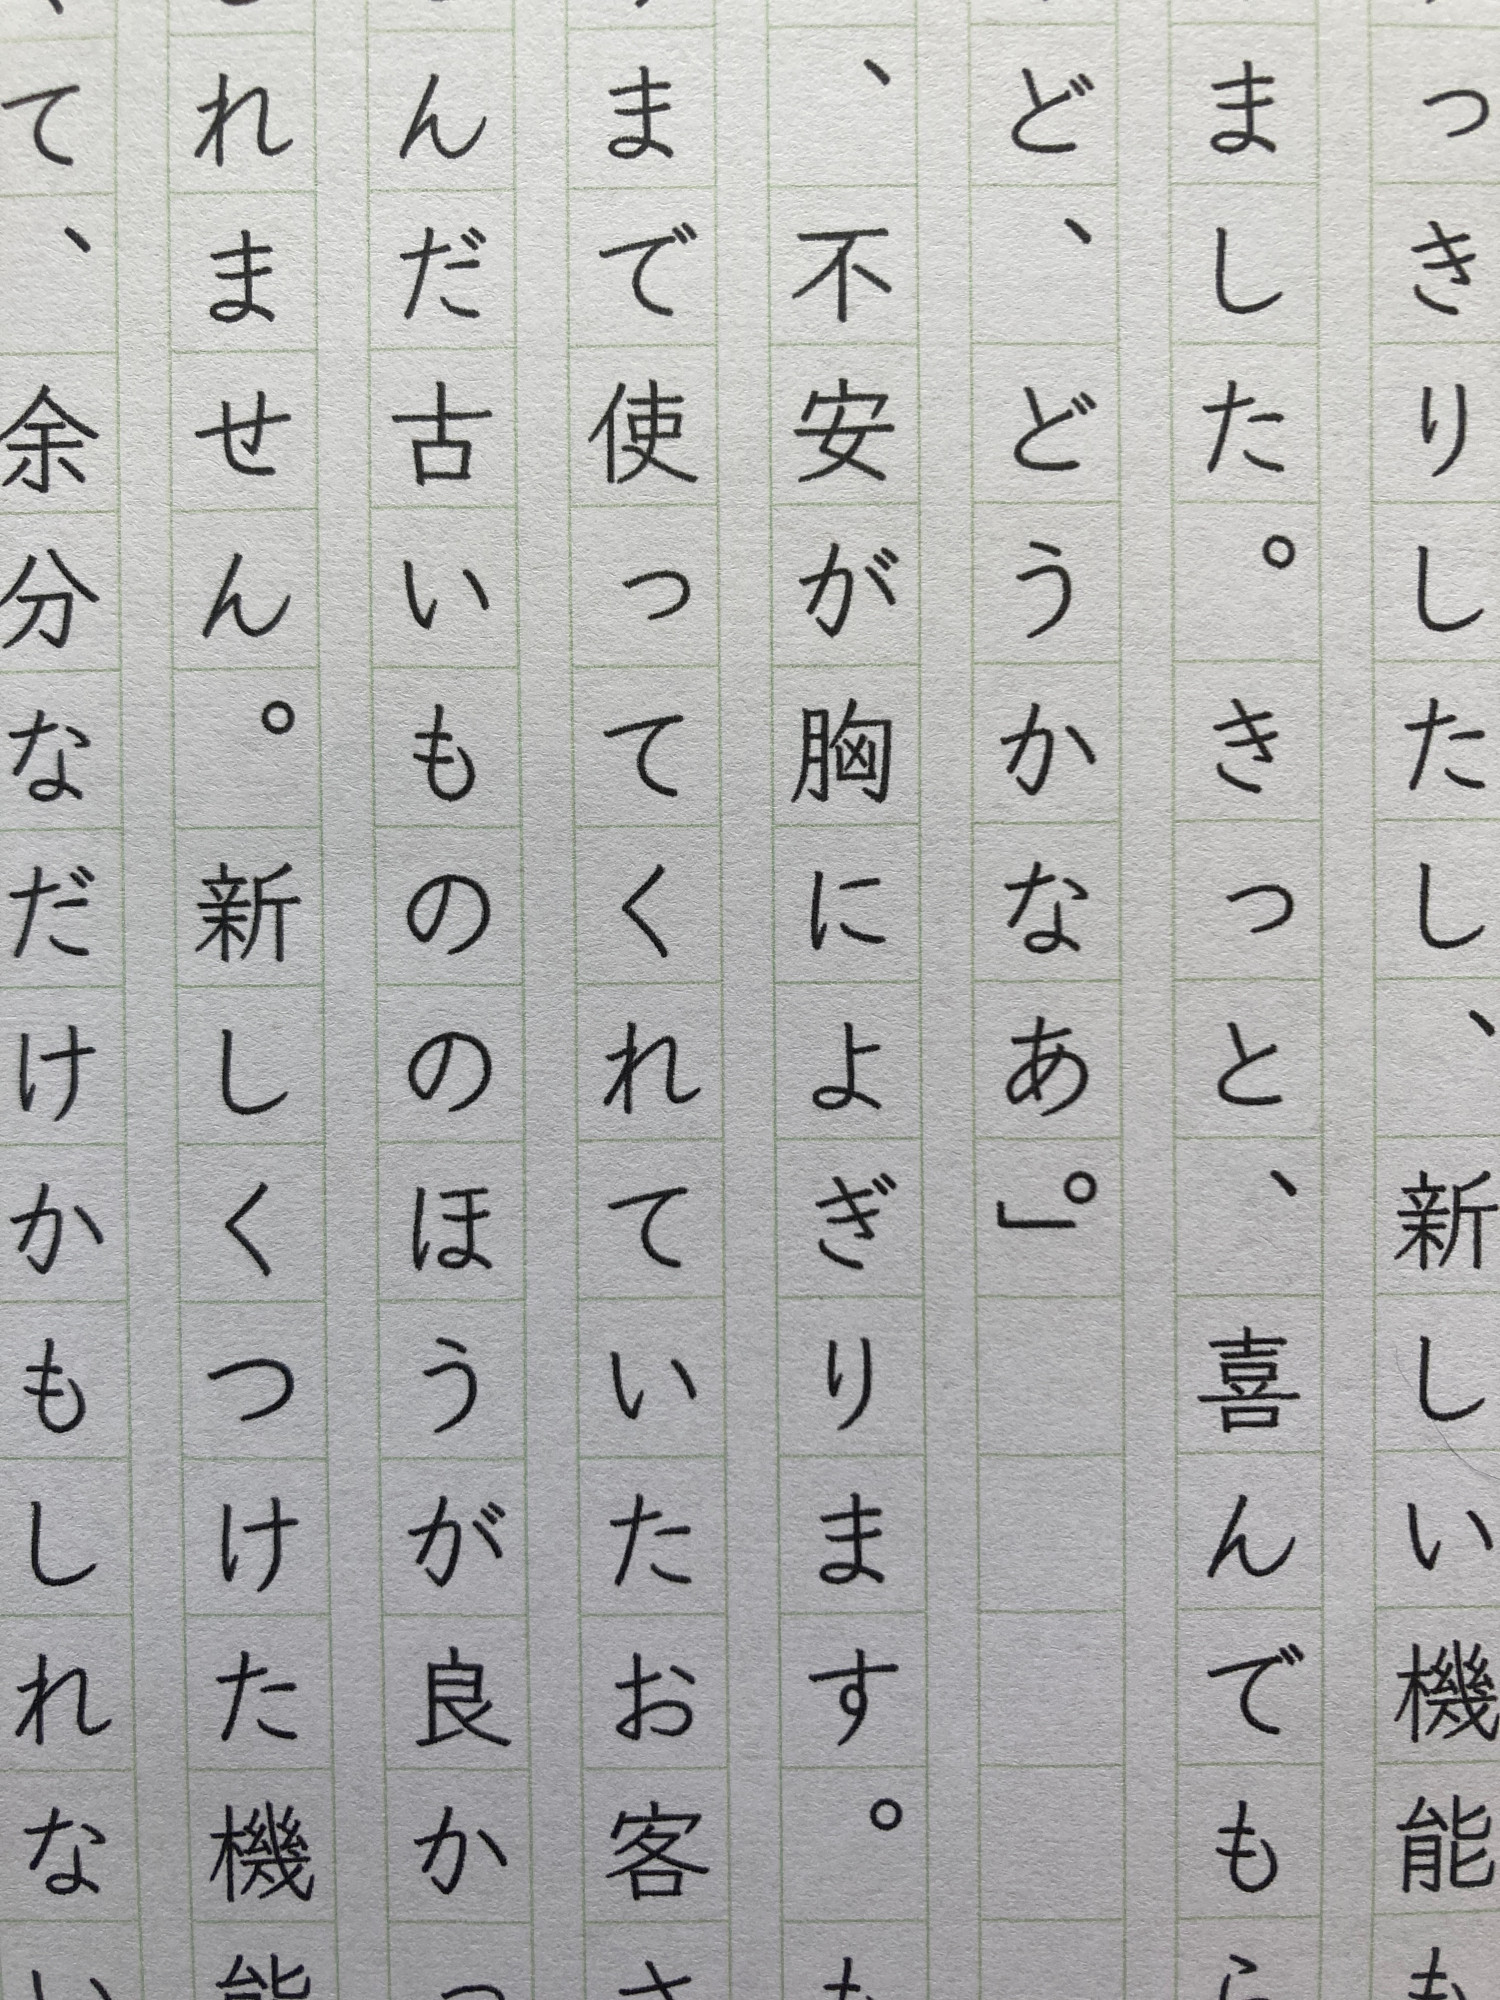 っきりしたし、新しい機能も
ました。きっと、喜んでもら
ど、どうかなあ。」
、不安が胸によぎります。も
まで使ってくれていたお客さ
んだ古いもののほうが良かっ
れません。新しくつけた機能
て、余分なだけかもしれない